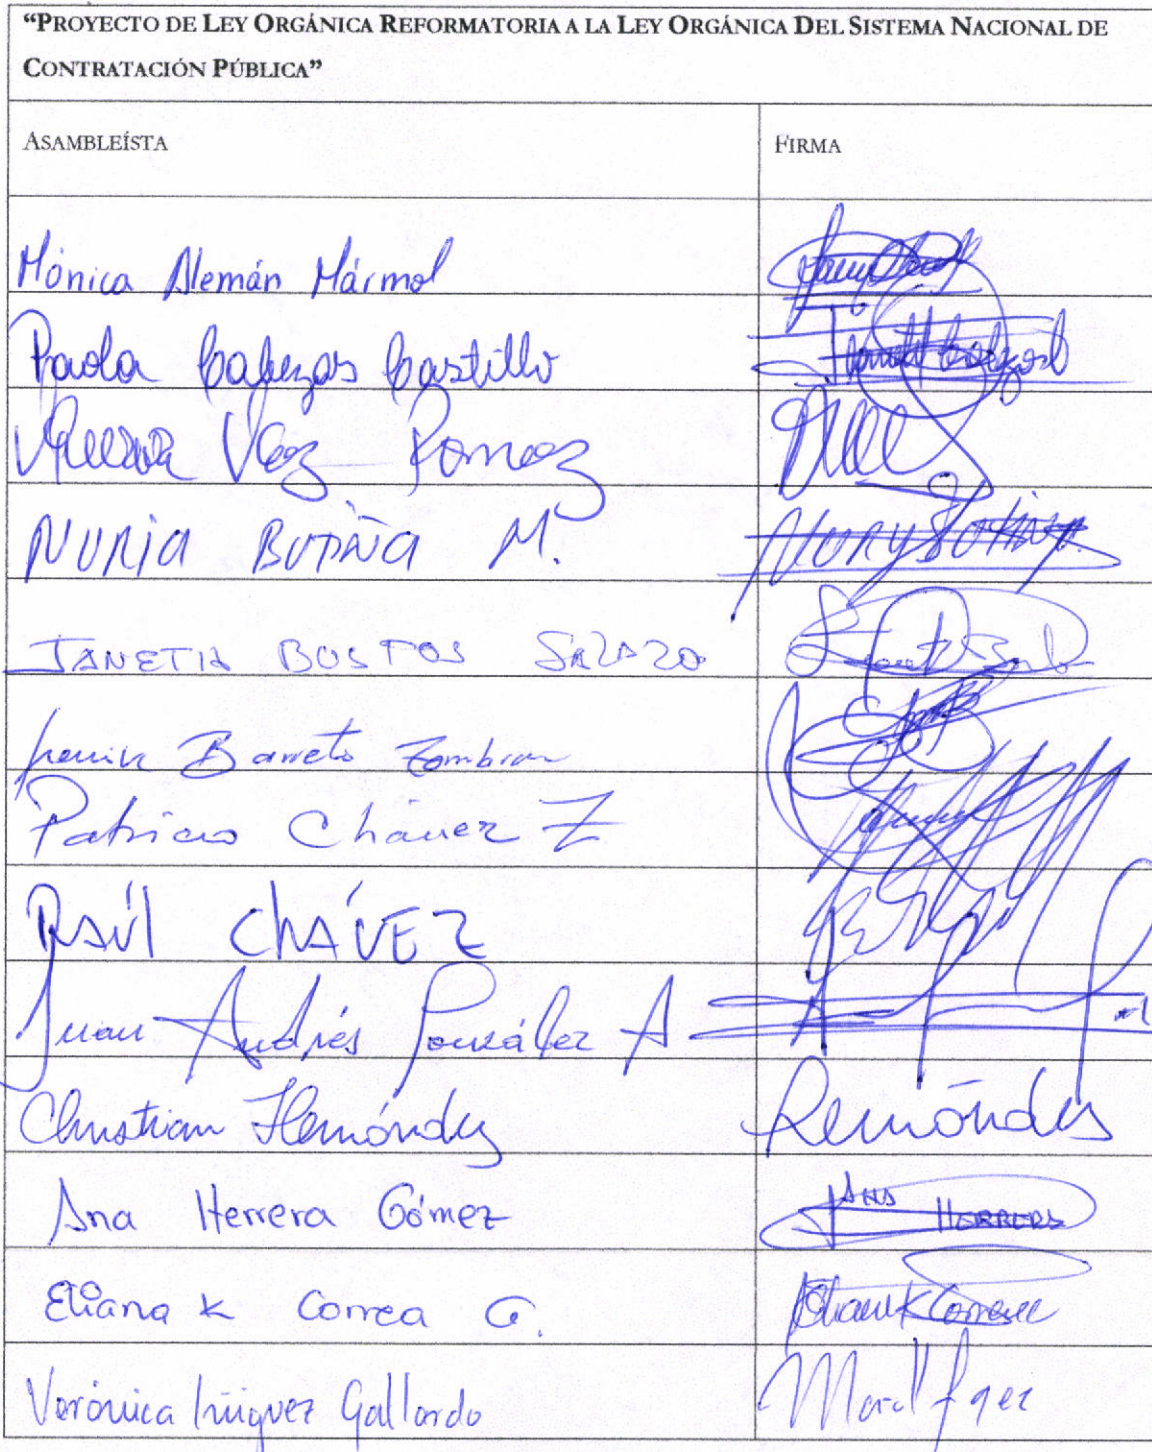 “PROYECTO DE LEY ORGÁNICA REFORMATORIA A LA LEY ORGÁNICA DEL SISTEMA NACIONAL DE
CONTRATACIÓN PÚBLICA”
ASAMBLEÍSTA FIRMA
Mónica Alemán Mármol
Paola Cabezas Castillo
Vaz
NURIA BUTIÑA M.
JANETH BUSTOS
Barreto
Patricio Chávez Z
RAÚL CHÁVEZ
Juan Andrés González A
Christian Hernández Hernández
Ana Herrera Gómez ANA HERRERA
Eliana K Correa G. Eliana K Correa
Verónica Iñiguez Gallardo